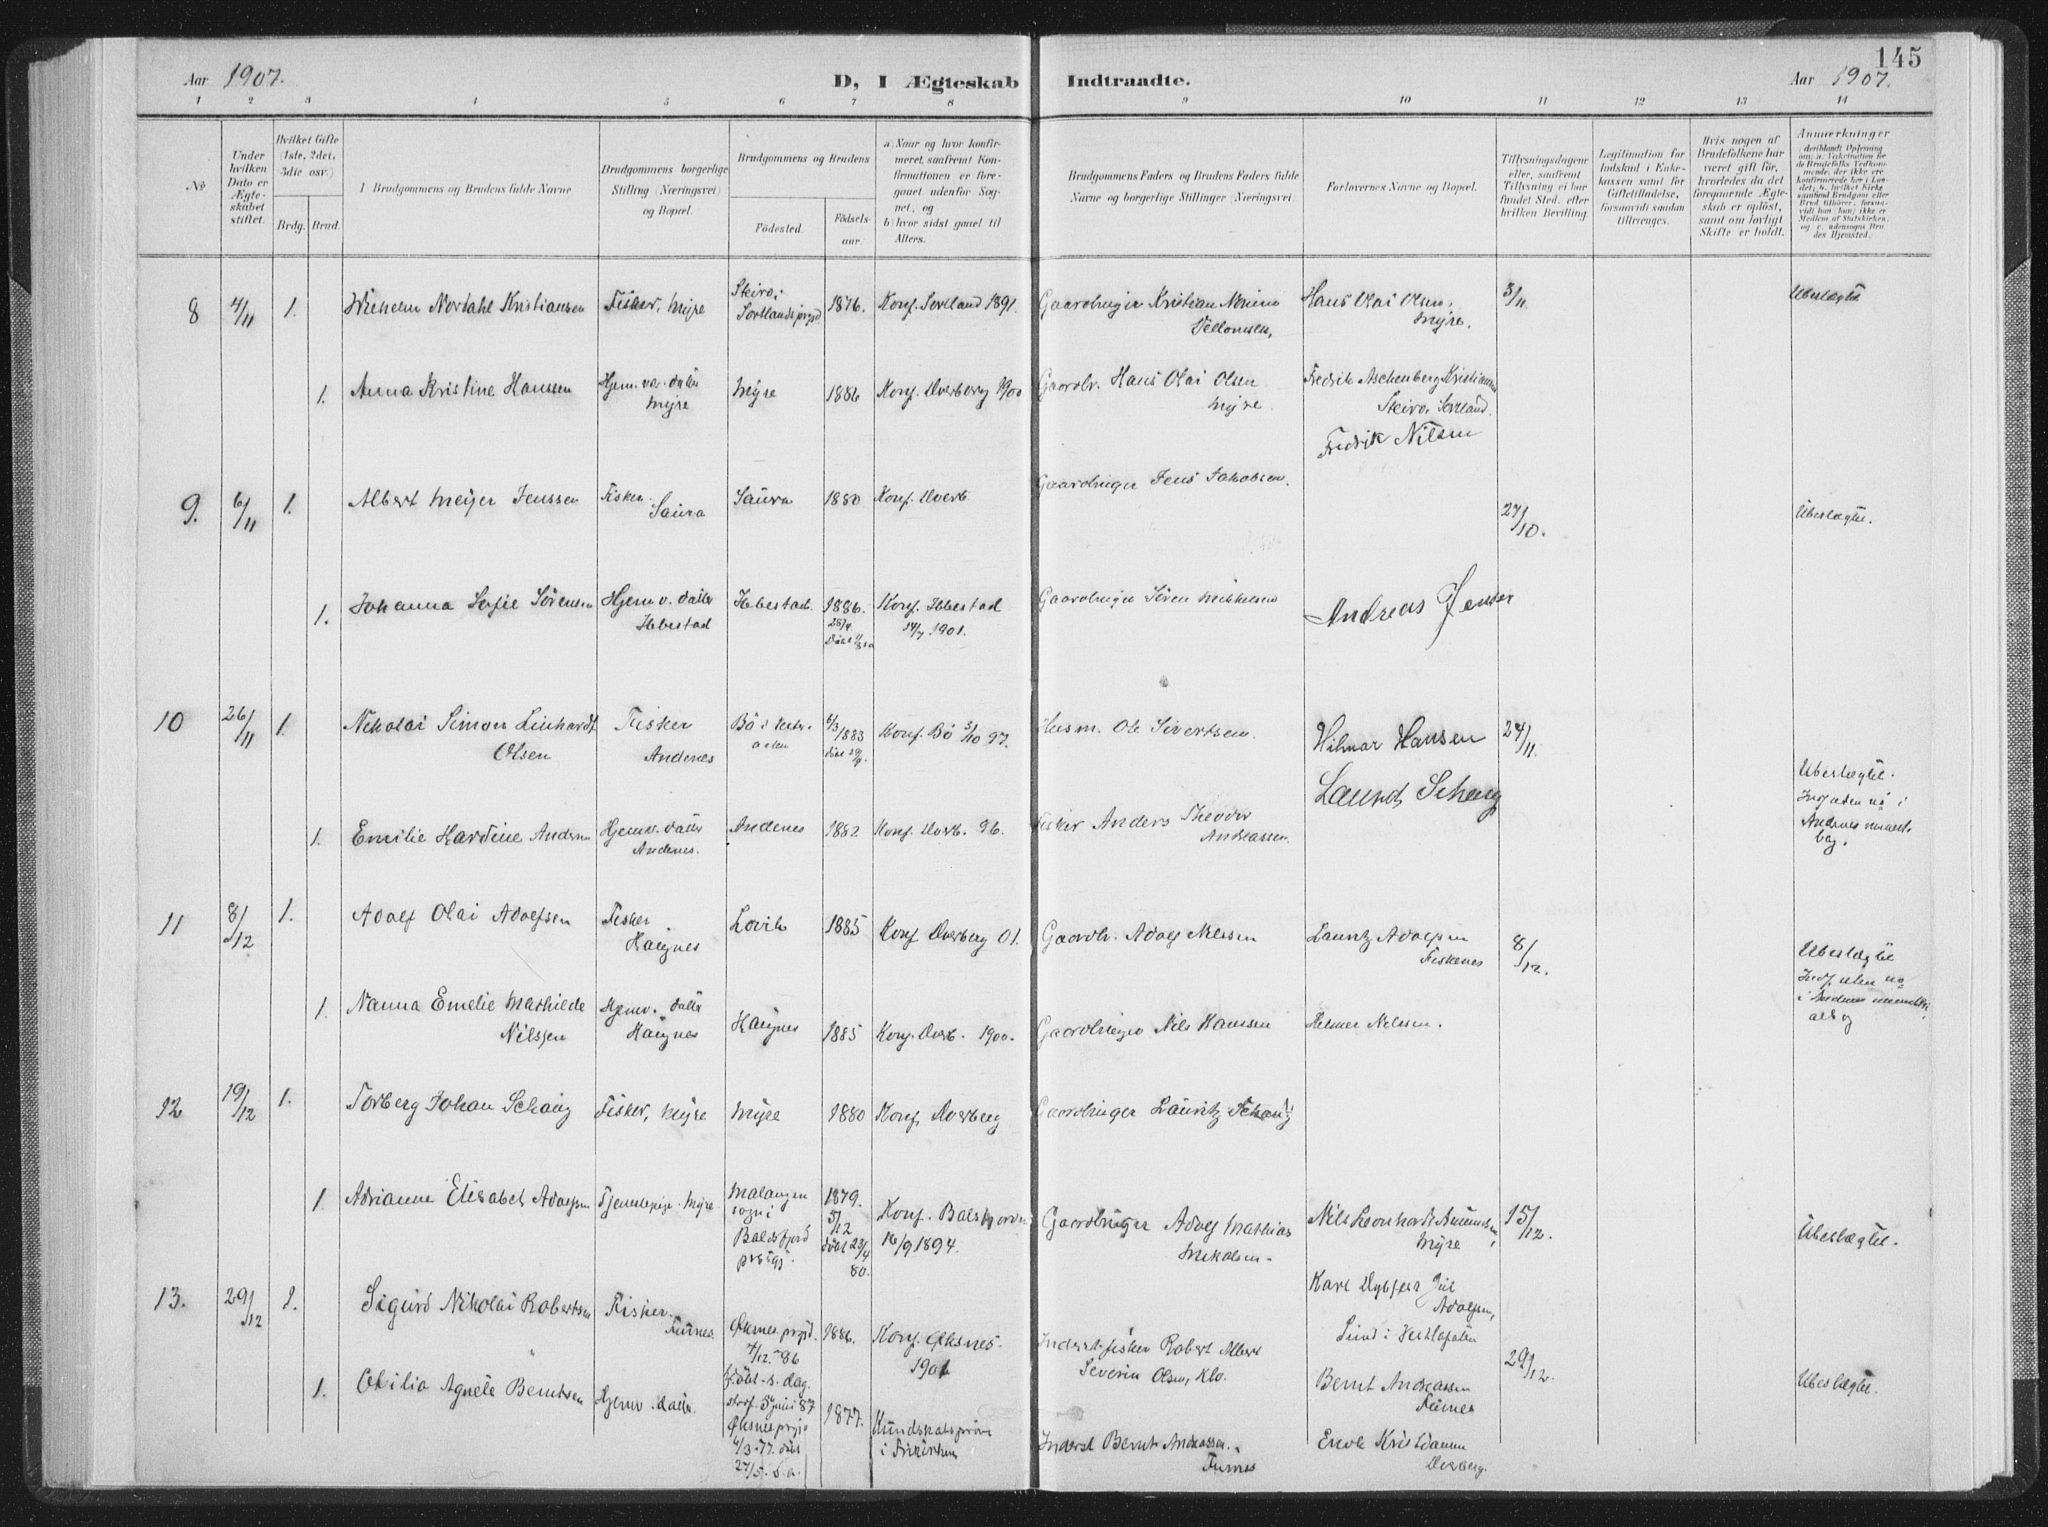 145
Aar 1907.
D, I Ægteskab Indtraadte.
Aar 1907.
1 2 3 4 5 6 7 8 9 10 11 12 13 14
No
Under hvilken Dato er Ægteskabet stiftet.
Hvilket Gifte (1ste, 2det, 3die osv.)
Brdg. Brud.
Brudgommens og Brudens fulde Navne
Brudgommens borgerlige Stilling (Næringsvei) og Bopæl.
Brudgommens og Brudens
Födested.
Födselsaar.
a) Naar og hvor konfirmeret, saafremt Konfirmationen er foregaaet udenför Sognet, og
b) hvor sidst gaaet til Alters.
Brudgommens Faders og Brudens Faders fulde Navne og borgerlige Stillinger (Næringsvei).
Forlovernes Navne og Bopæl.
Tillysningsdagene eller, saafremt Tillysning ei har fundet Sted, efter hvilken Bevilling
Legitimation for Indskud i Enkekassen samt for Gifteltilladelse, forsaavidt saadan tiltrænges.
Hvis nogen af Brudefolkene har været gift för, hvorledes da det foregaaende Ægteskab er oplöst, samt om lovligt Skifte er holdt.
Anmærkninger
8 4/11 1. Wilhelm Nordahl Kristiansen Fisker, Myre Skiro i Sortlands prgd 1876. Konf. Sortland 1891. Gaardbruger Kristian
Hans Olai Olsen, Myre. 3/11. Ubeslægtet
1. Anna Kristine Hanssen Hjemv. datter Myre Myre 1886 Konf. Dverberg 1900 Gaardbr. Hans Olai Olsen Myre.
Fredrik Aschenberg Kristiansen Skiro, Sortland.
Fredrik Nilsen
9. 6/11 1. Albert Meyer Jenssen Fisker. Saura Saura 1880 Konf. Dverb. Gaardbruger Jens Jakobsen. 27/10. Ubeslægtet.
1. Johanna Sofie Sörensen Hjemv. datter Ibbestad Ibbestad. 1886. 25/4. Konf. Ibbestad 14/7 1901. Gaardbruger Sören Mikkelsen
Andreas Jensen
10 26/11 1. Nikolai Simon Linhardt Olsen Fisker Andenes Bö i Vesteraalen 6/3 1883 Konf. Bö 3/10 97. Husm. Ole Sivertsen.
Hilmar Hansen 24/11.
Laurids Schaug
Ubeslægtet.
1. Emilie Hardine Andersen Hjemv. datter Andenes. Andenes 1882 Konf. Dverb. 96. Fisker Anders Theodor Andreassen.
11 8/12 1. Adolf Olai Adolfsen Fisker Haugnes Lovik 1885 Konf Dverberg 01. Gaardbr. Adolf Nilssen
Lauritz Adolfsen Fiskenes 8/12. Ubeslægtet
1. Nanna Emelie Mathilde Nilssen Hjemv. datter Haugnes Haugnes 1885 Konf. Dverb. 1900. Gaardbruger Nils Hanssen Helmer Nilssen.
12 19/12 1. Torberg Johan Schaug Fisker, Myre Myre 1880 Konf. Dverberg Gaardbruger Lauritz Schaug
1. Adrianne Elisabet Adolfsen Tjenestepige. Myre Malangen sogn i Balsfjord prgj. 1879. 5/12 döbt 23/4 80. Konf. Balsfjorden 16/9 1894. Gaardbruger Adolf Mathias Mikalsen.
Nils Leonhard Amundsen, Myre 15/12. Ubeslægtet.
Karl Dybfest Juel Adolfsen, Sund i
13. 29/12 1. Sigurd Nikolai Robertsen Fisker. Furnes. Öksnes prgjd. 7/12.-86 1886. Konf. Öksnes. 1901 Inderst fisker Robert Albert Severin Olsen, Klo.
29/12. Ubeslægtet.
Bernt Andreassen Furnes
1. Otilie Agnete Berntsen Hjemv. datter. Öksnes prgjd 4/3-77. döbt 27/5. s.a. 1877. Kundskabspröve i Frikirken Inderst Bernt Andreassen. Furnes
Enok Kristiansen Dverberg.